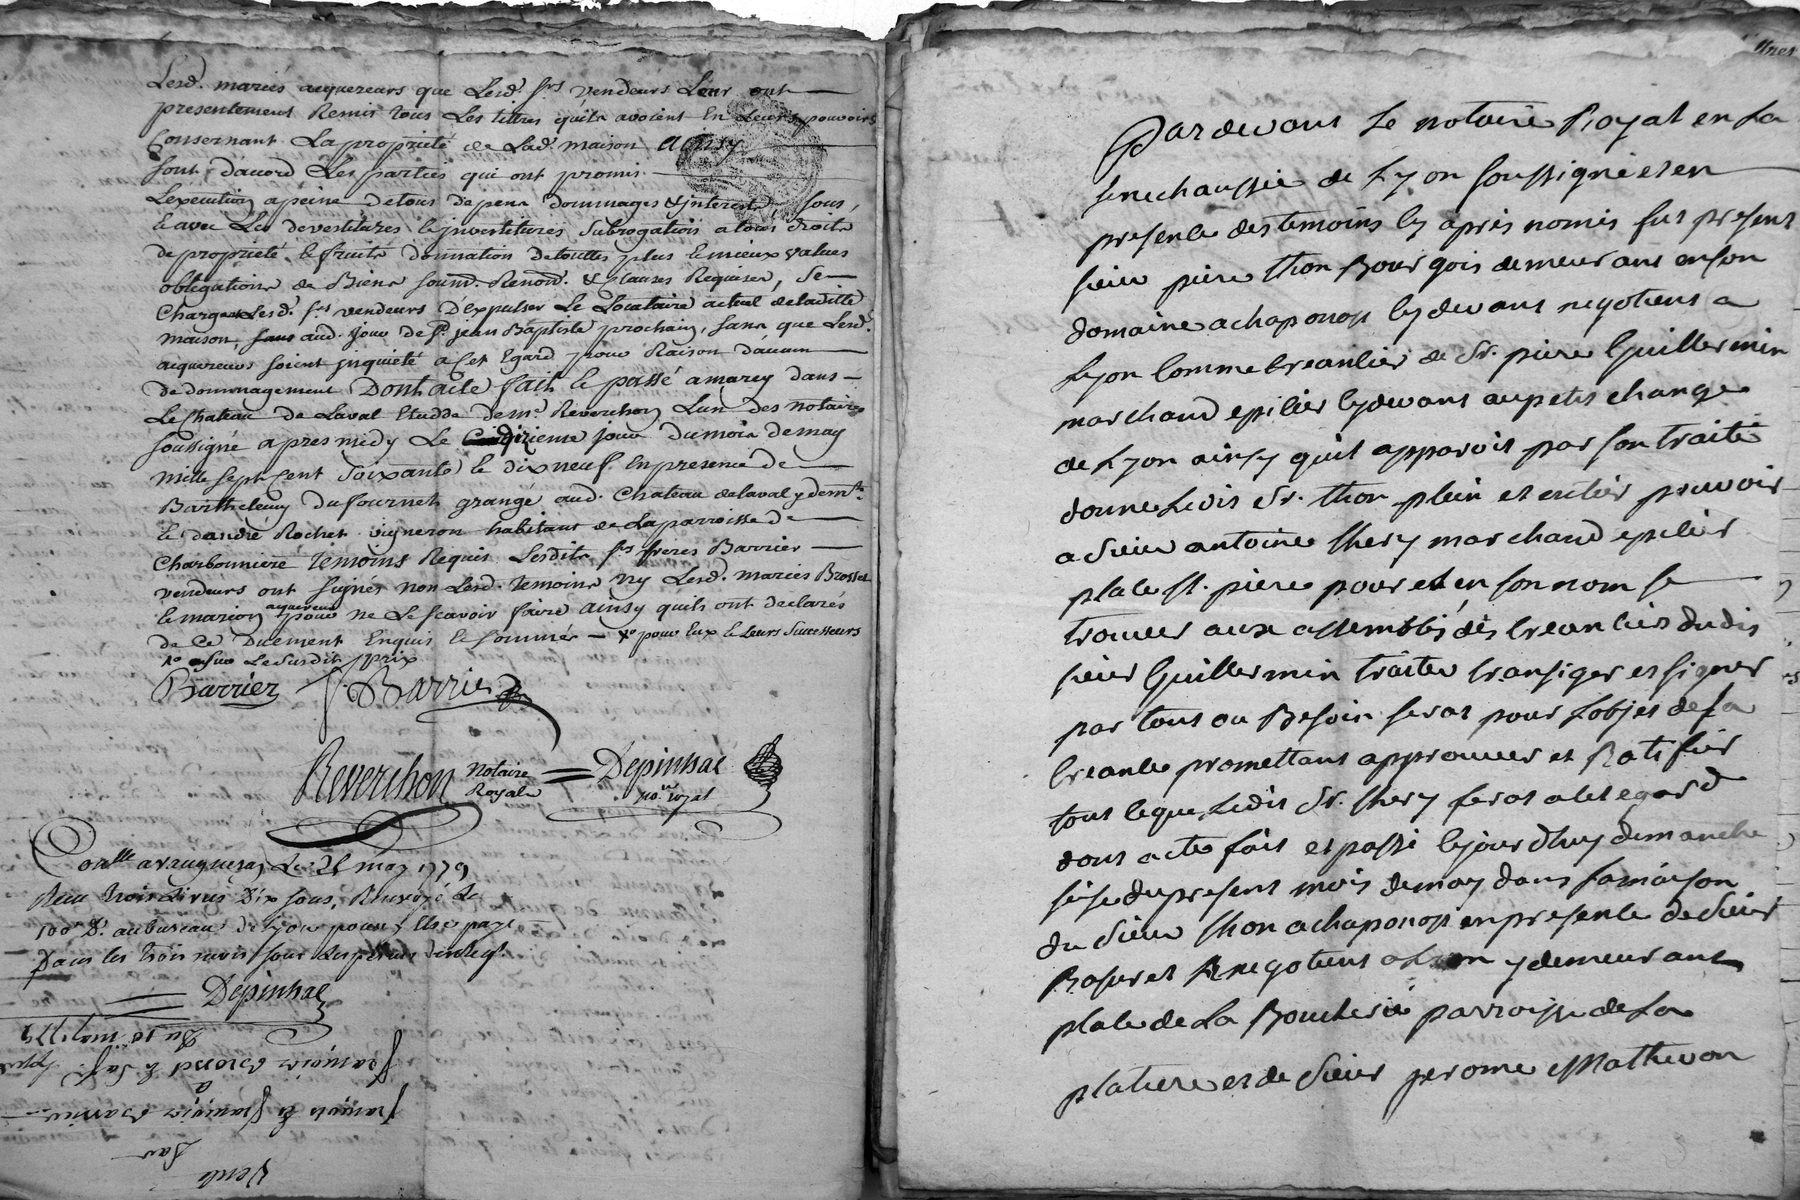 Lesd. mariés acquereurs que Lesd. srs vendeurs Leur ont
presentement Remis tous Les tittres quils avoient En Leurs pouvoirs
Consernant La proprieté de Lad. maison Ainsy
sont d'acord Les parties qui ont promis
L'execution a peine de tous depens dommages & interest, sous,
& avec Les devestitures & investitures subrogation a tous droits
de proprieté & fruits donnation de touttes plus & mieux values
obligations de Biens soumd. Renond. & Clauses Requises, se
Charge Lesd. srs vendeurs D'Expulser Le Locataire actuel de ladite
maison, aud. jour de St. jean Baptiste prochain, sans que Lesd.
acquereurs soient inquieté a Cet Egard pour Raison d'aucun
dedommagement Dont acte fait & passé a marcy dans
Le Chateau de Laval Etude de me. Reverchon L'un des notaires
soussigné apres midy Le dixieme jour du mois de may
mille sept Cent soixante & dix neuf En presence de
Barthelemy Dufournel grangé aud. Chateau de Laval y demt.
& d'andré Rochet vigneron habitant de La parroisse de
Charbonniere temoins Requis Lesdits srs freres Barrier
vendeurs ont signés non Lesd. temoins ny Lesd. mariés Brosset
& marion acquereurs pour ne Le scavoir faire ainsy quils ont declarés
de Ce Duement Enquis & sommés pour Eux & Leurs successeurs
sur Le susdit prix
Barrier Barrier
Reverchon Notaire Royal Depinhac nore. royal
Conlle a vaugneray Le 21 may 1779
Reçu trois Livres Dix sous, Renvoyé Le
100e D. au bureau de Lyon pour y Etre payé
Dans les trois mois sous Les peines
Depinhac
Du 10 may 1779
françois Brosset & sa
a
françois & françois Barrier
par
Vente
Pardevant Le notaire Royal en La
senechaussée de Lyon soussigné et en
presence des temoins cy après només fut present
sieur piere thon Bourgois demeurant en son
domaine a chaponost cy devant negotient a
Lyon comme creancier de Sr. piere Guillermin
marchand epicier cy devant au petit change
de Lyon ainsy quil apparoit par son traité
donne Ledit Sr. thon plein et entier pouvoir
a sieur antoine thery marchand epicier
place St. piere pour et en son nom se
trouver aux assemblés des creanciers dudit
sieur Guillermin traiter transiger et signer
par tout ou Besoin serat pour Lobjet de sa
creance promettant approuver et Ratifier
tout ce que Ledit Sr. thery ferat a cet egard
dont acte fait et passé cejourdhuy dimanche
seise du present mois de may dans la maison
du sieur thon a chaponost en presence de sieur
negotient a Lyon y demeurant
place de La Boucherie parroisse de La
platiere et de sieur jerome Mathevon